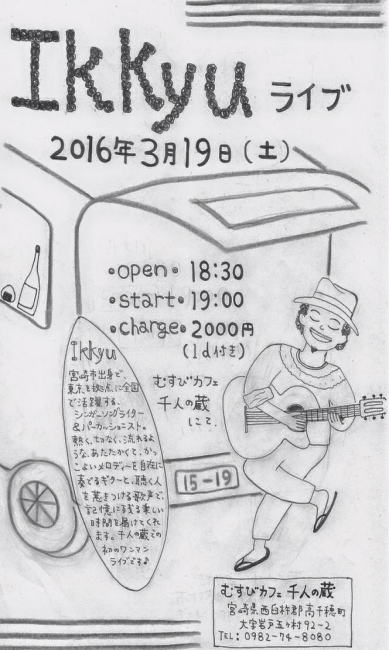 Ikkyu ライブ
2016年3月19日(土)
•open• 18:30
•start• 19:00
•charge• 2000円
(1d付き)
むすびカフェ
千人の蔵
にて.
Ikkyu
宮崎市出身で、
東京を拠点に全国
で活躍する、
シンガーソングライター
&パーカッショニスト。
熱く、切なく、流れるよ
うな、あたたかくて、かっ
こよいメロディーを自在に
奏でるギターと、聴く人
を惹きつける歌声で、
記憶に残る楽しい
時間を届けてくれ
ます。千人の蔵での
初のワンマン
ライブです♪
15-19
むすびカフェ 千人の蔵
宮崎県西臼杵郡高千穂町
大字岩戸五ヶ村92-2
TEL:0982-74-8080